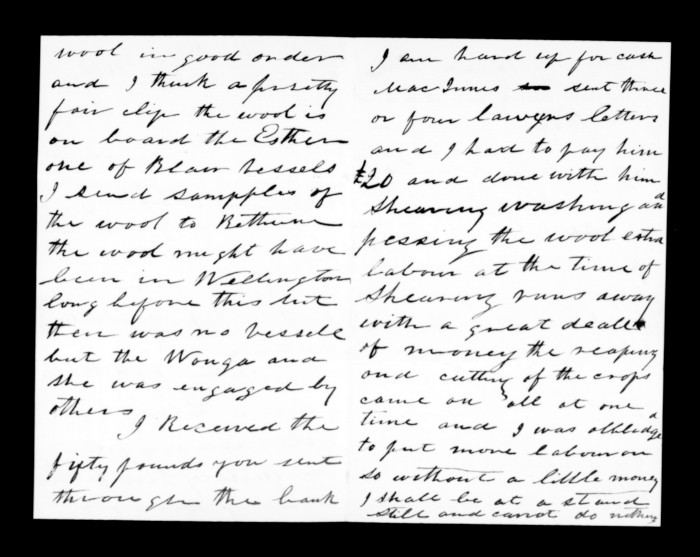 wool in good order
and I think a pretty
fair clip the wool is
on board the Esther
one of Blair vessels
I send sampples of
the wool to Bethune
the wool might have
been in Wellington
long before this but
then was no vessele
but the Wonga and
she was engaged by
others
I Received the
fifty pounds you sent
through the bank
I am hard up for cash
MacInnes sent three
or four lawyers letters
and I had to pay him
£20 and done with him
shearing washing and
pessing the wool extra
labour at the time of
shearing runs away
with a great deall
of money the reaping
and cutting of the crops
came on all at one
time and I was obblidged
to put more labour on
so without a little money
I shall be at a stand
still and cannot do nothing